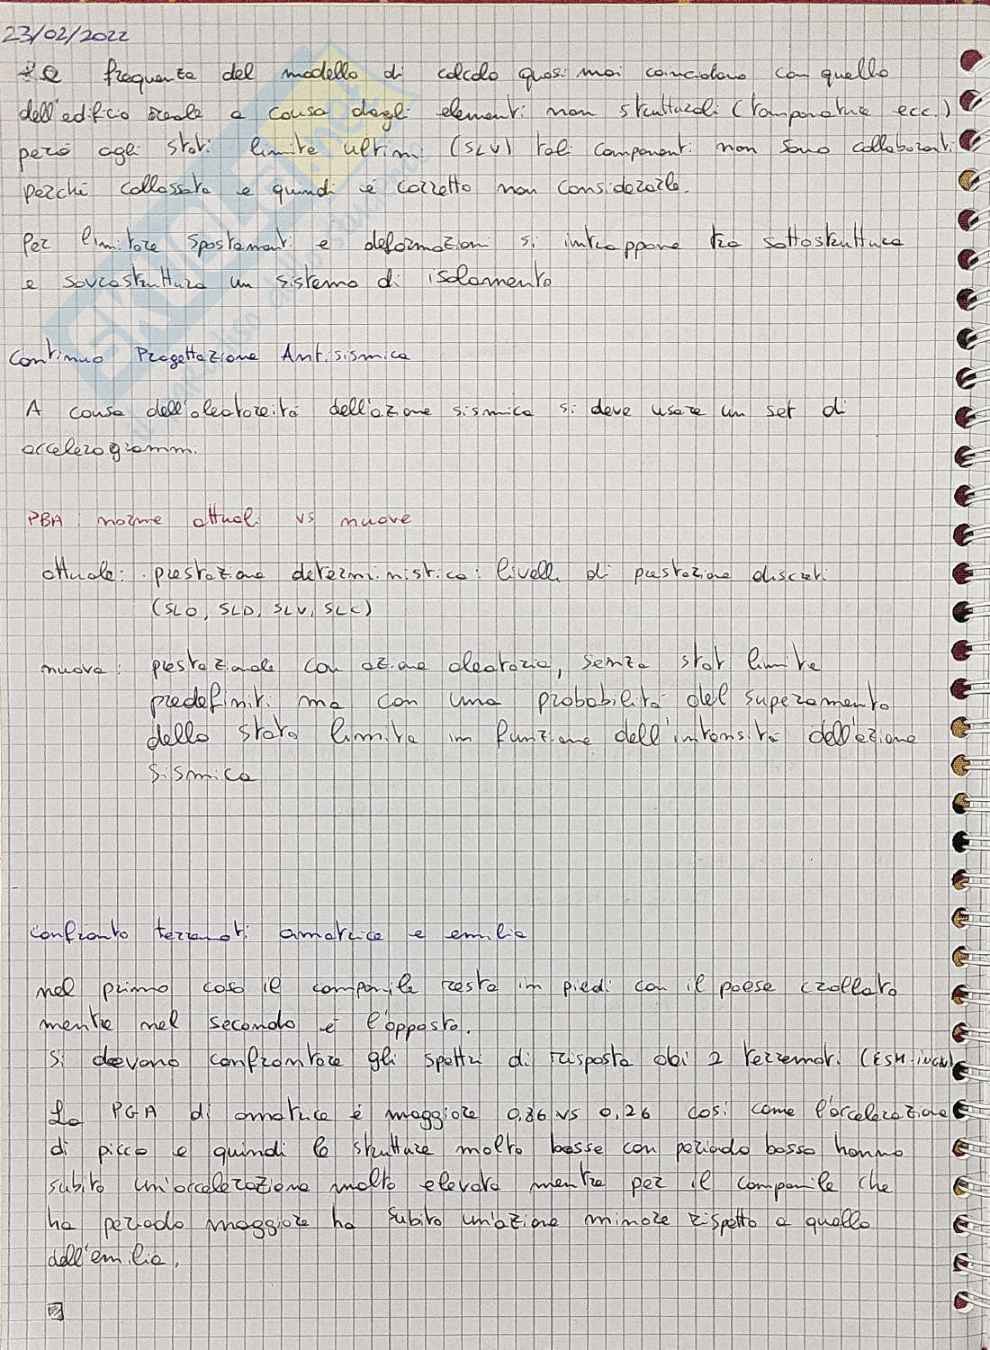 23/02/2022
* Le frequenze del modello di calcolo quasi mai coincidono con quelle
dell'edificio reale a causa degli elementi non strutturali (tamponature ecc.)
però agli stati limite ultimi (SLV) tali componenti non sono collaboranti
perché collassate e quindi è corretto non considerarle.
Per limitare spostamenti e deformazioni si intrappone tra sottostruttura
e sovrastruttura un sistema di isolamento
Continuo Progettazione Antisismica
A causa dell'aleatoreità dell'azione sismica si deve usare un set di
accelerogrammi.
PBA: norme attuali vs nuove
attuale: prestazione deterministica: livelli di prestazione discreti
(SLO, SLD, SLV, SLC)
nuova: prestazionale con azione aleatoria, senza stati limite
predefiniti ma con una probabilità del superamento
dello stato limite in funzione dell'intensità dell'azione
sismica
confronto terremoti amatrice e emilia
nel primo caso il campanile resta in piedi con il paese crollato
mentre nel secondo è l'opposto.
Si devono confrontare gli spettri di risposta dei 2 terremoti. (ESM-INGV)
La PGA di amatrice è maggiore 0,86 vs 0,26 così come l'accelerazione
di picco e quindi le strutture molto basse con periodo basso hanno
subito un'accelerazione molto elevata mentre per il campanile che
ha periodo maggiore ha subito un'azione minore rispetto a quello
dell'emilia.
SKUOLA.net